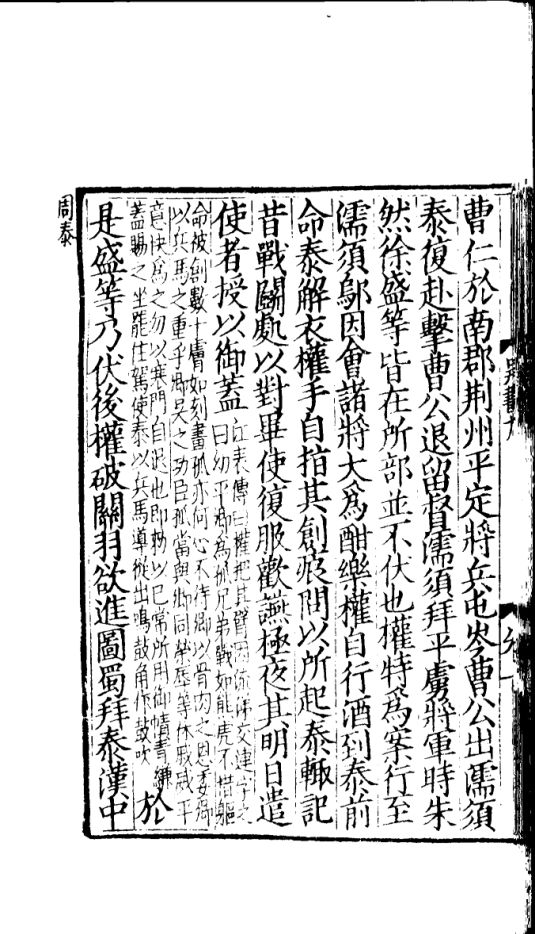 曹仁於南郡荆州平定將兵屯岑曹公出濡須
泰復赴擊曹公退留督濡須拜平虜將軍時朱
然徐盛等皆在所部並不伏也權特爲案行至
濡須鄔因會諸將大爲酣樂權自行酒到泰前
命泰解衣權手自指其創痕問以所起泰輙記
昔戰鬭處以對畢使復服歡讌極夜其明日遣
使者授以御蓋
江表傳曰權把其臂因流涕交連字之
曰幼平卿爲孤兄弟戰如熊虎不惜軀
命被創數十膚如刻畫孤亦何心不待卿以骨肉之恩委卿
以兵馬之重乎卿吳之功臣孤當與卿同榮辱等休戚平
意快爲之勿以寒門自退也即勑以已常所用御幘青縑
蓋賜之坐罷住駕使泰以兵馬導從出鳴鼓角作鼓吹
於
是盛等乃伏後權破關羽欲進圖蜀拜泰漢中
周泰